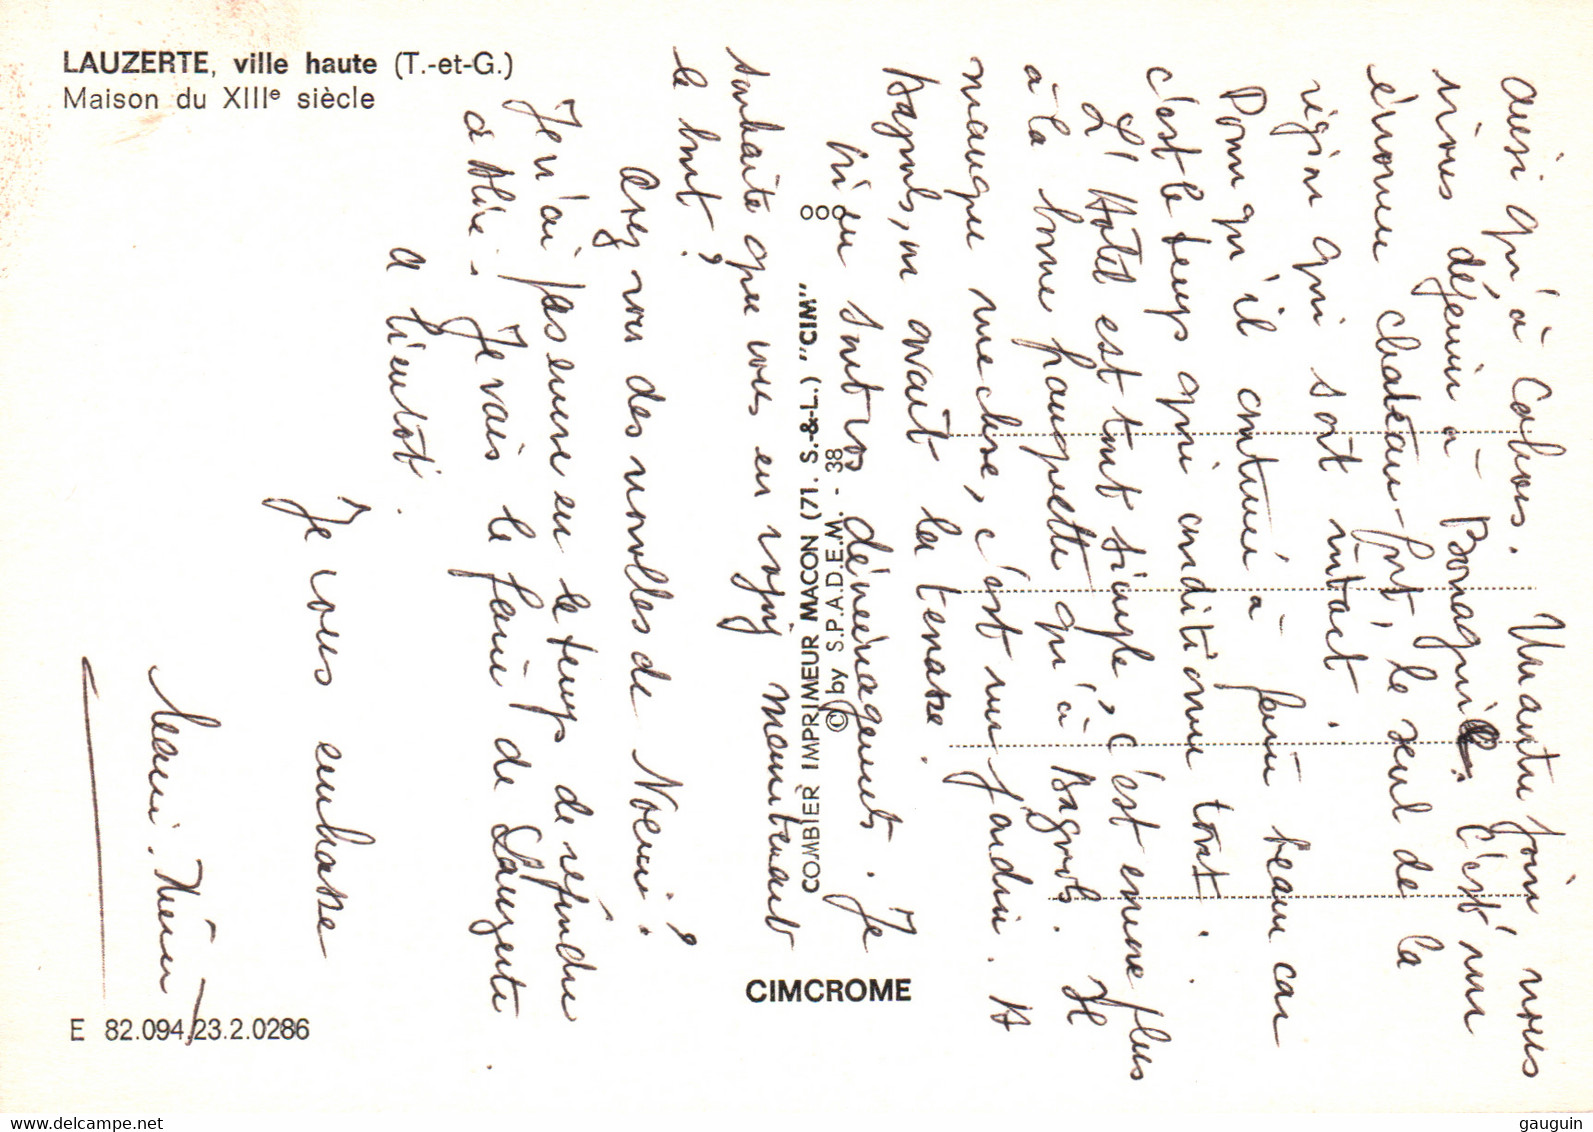 LAUZERTE, ville haute (T.-et-G.)
Maison du XIIIe siècle
aussi qu'à Cahors. Un autre jour nous
irons déjeuner à Bonaguil. C'est un
énorme château-fort, le seul de la
région qui soit intact.
Pourvu qu'il continue à faire beau car
c'est le temps qui conditionne tout.
L'Hôtel est tout simple, c'est encore plus
à la bonne franquette qu'à Bagnols. Il
manque une chose, c'est un jardin. A
Bagnols, on avait la terrasse.
où en sont vos déménagements. Je
souhaite que vous en voyiez maintenant
le bout ?
Avez vous des nouvelles de Noémie ?
Je n'ai pas encore eu le temps de répondre
à Aline. Je vais le faire de Lauzerte
A bientôt.
Je vous embrasse
COMBIER IMPRIMEUR MACON (71. S.-&-L.) "CIM"
© by S.P.A.D.E.M. - 38
CIMCROME
E 82.094.23.2.0286
gauguin